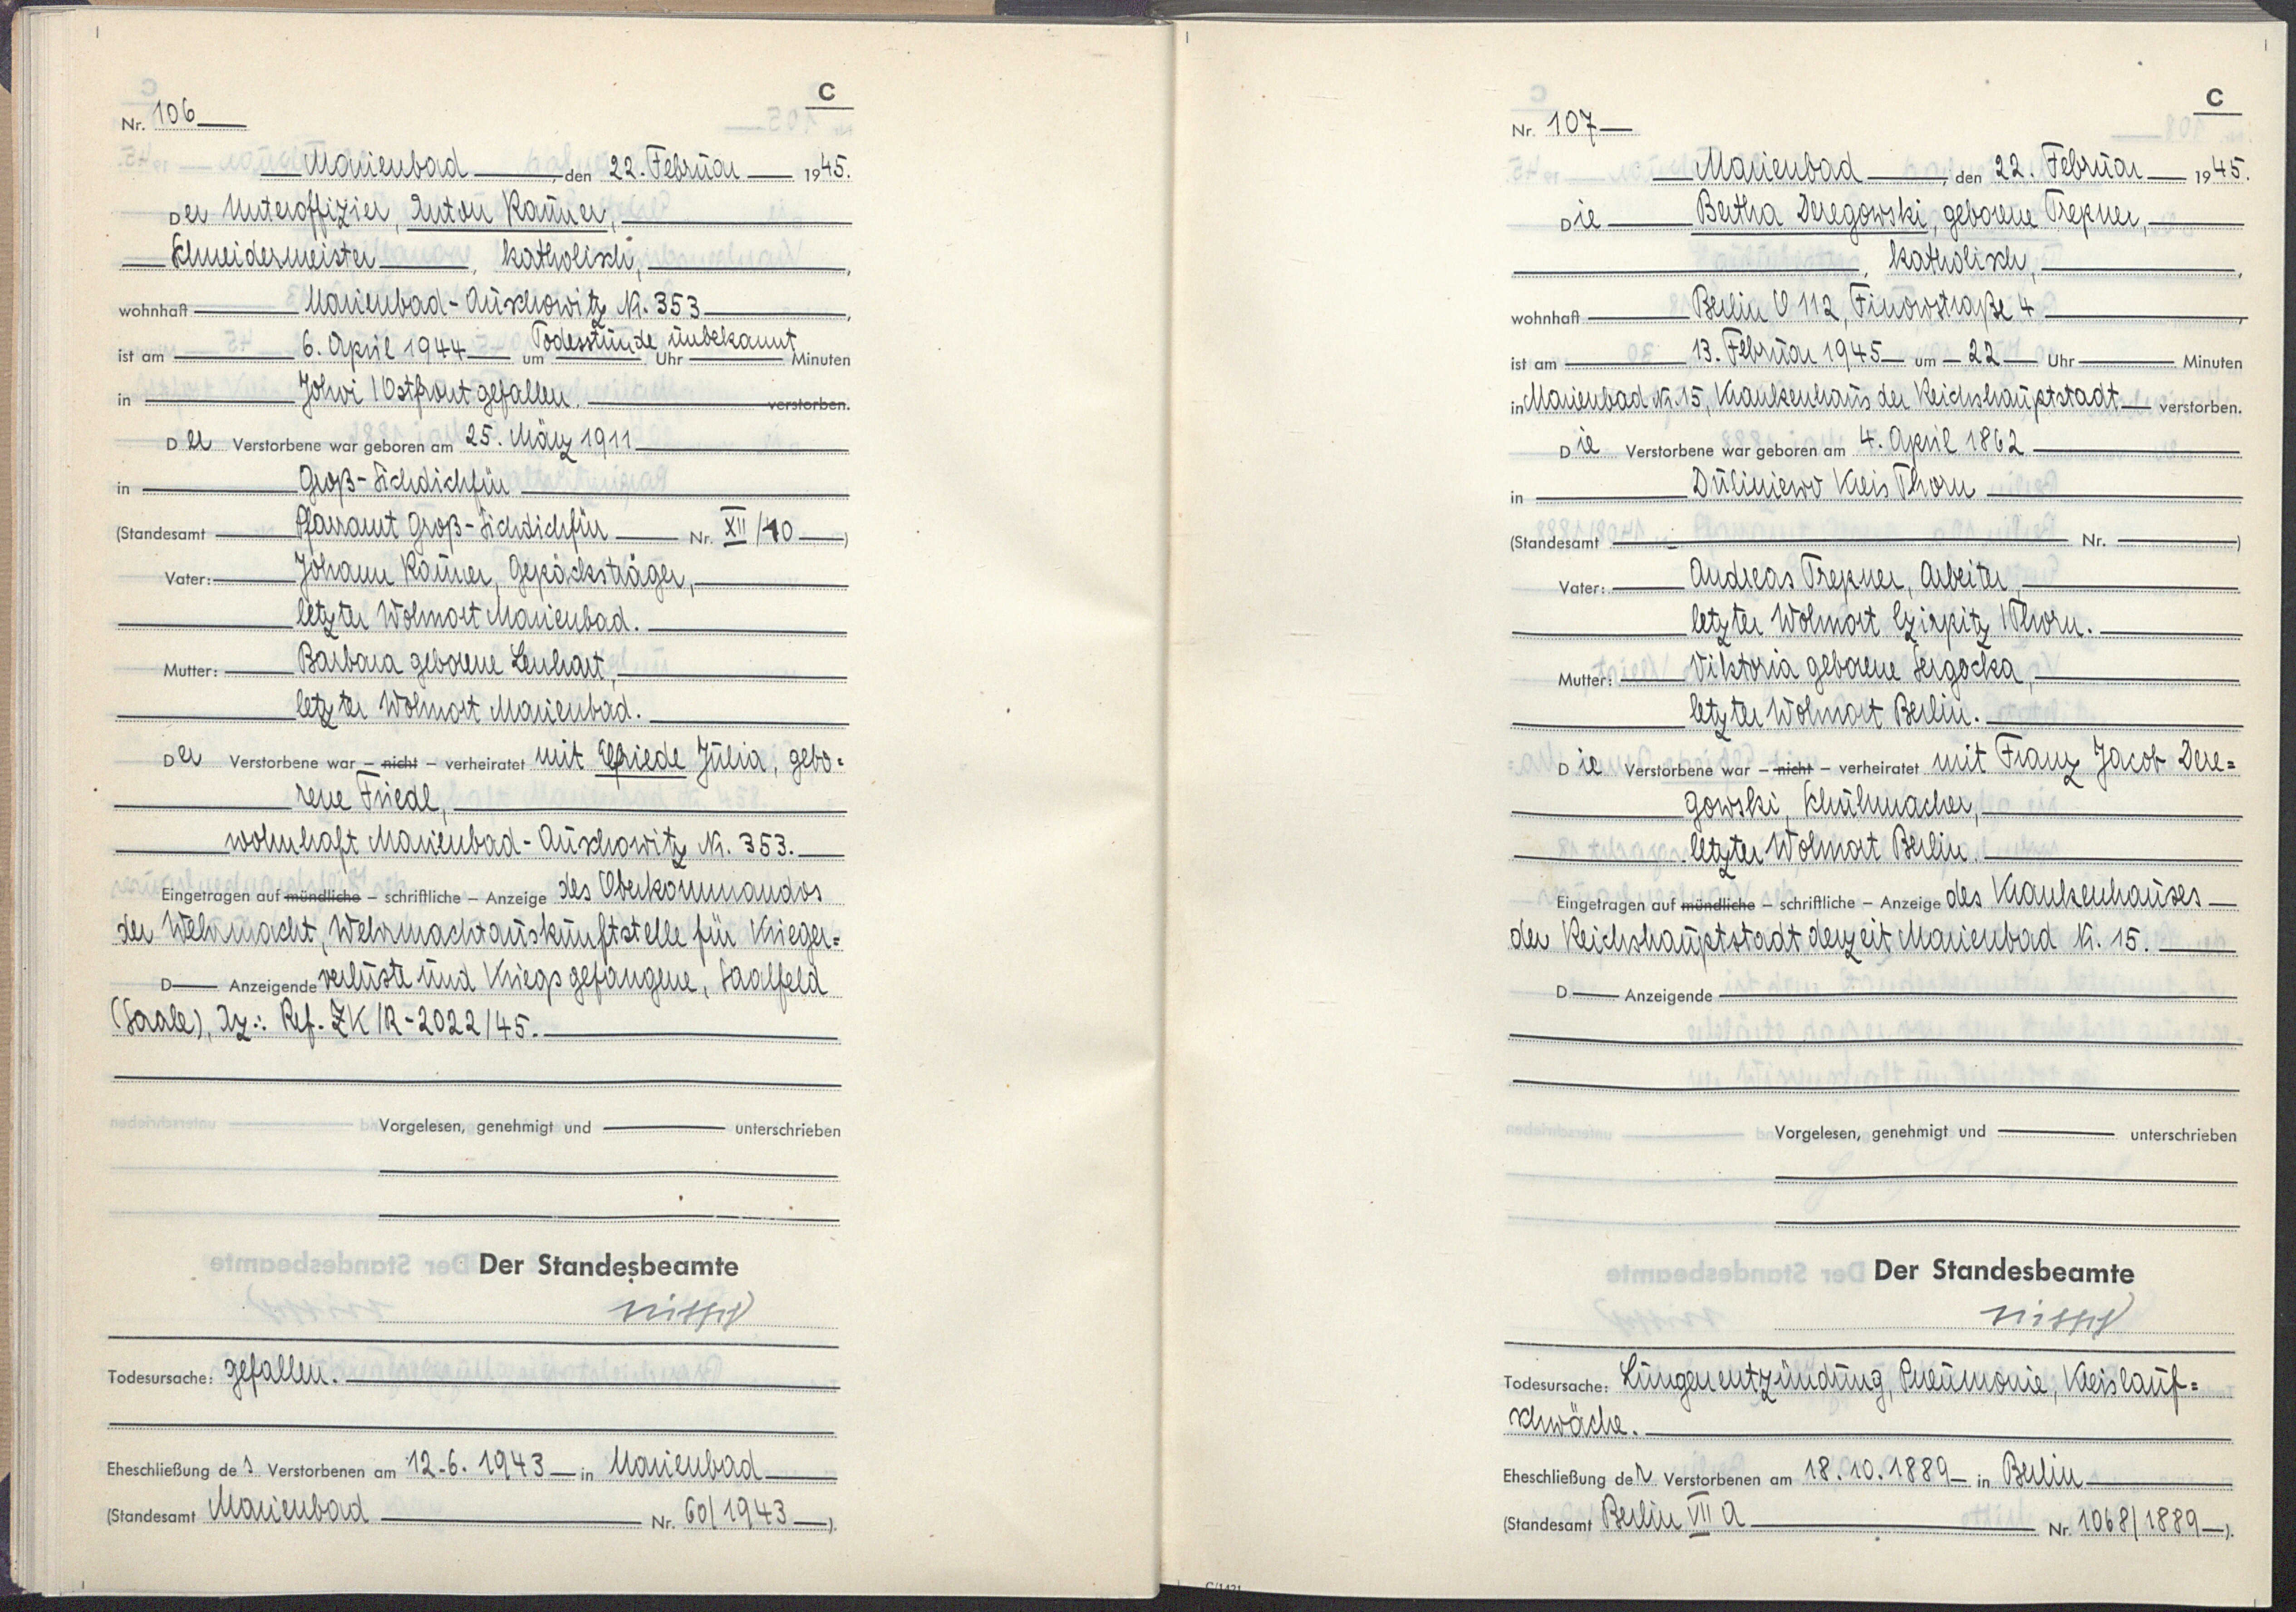 C
Nr. 106
Marienbad, den 22. Februar 1945.
Der Unteroffizier, Anton Rauner,
Schneidermeister, katholisch,
wohnhaft Marienbad-Auschowitz Nr. 353,
ist am 6. April 1944 um Todesstunde unbekannt Uhr Minuten
in Johvi / Ostfront gefallen. verstorben.
Der Verstorbene war geboren am 25. März 1911
in Groß-Sichdichfür
(Standesamt Pfarramt Groß-Sichdichfür Nr. XII/40)
Vater: Johann Rauner, Gepäcksträger,
letzter Wohnort Marienbad.
Mutter: Barbara geborene Lenhart,
letzter Wohnort Marienbad.
Der Verstorbene war – nicht – verheiratet mit Elfriede Julia, gebo=
rene Friedl,
wohnhaft Marienbad-Auschowitz Nr. 353.
Eingetragen auf mündliche – schriftliche – Anzeige des Oberkommandos
der Wehrmacht, Wehrmachtauskunftstelle für Krieger=
D Anzeigende verluste und Kriegsgefangene, Saalfeld
(Saale), Az.: Ref. ZK/R-2022/45.
Vorgelesen, genehmigt und unterschrieben
Der Standesbeamte
Todesursache: gefallen.
Eheschließung des Verstorbenen am 12.6. 1943 in Marienbad
(Standesamt Marienbad Nr. 60/1943).
C
Nr. 107
Marienbad, den 22. Februar 1945.
Die Bertha Deregowski, geborene Trepner,
, katholisch,
wohnhaft Berlin O 112, Finowstraße 4,
ist am 13. Februar 1945 um 22 Uhr Minuten
in Marienbad Nr. 15, Krankenhaus der Reichshauptstadt verstorben.
Die Verstorbene war geboren am 4. April 1862
in Duliniewo Kreis Thorn
(Standesamt Nr. )
Vater: Andreas Trepner, Arbeiter,
letzter Wohnort Czirpitz / Thorn.
Mutter: Viktoria geborene Sergocka,
letzter Wohnort Berlin.
Die Verstorbene war – nicht – verheiratet mit Franz Jacob Dere=
gowski, Schuhmacher,
letzter Wohnort Berlin.
Eingetragen auf mündliche – schriftliche – Anzeige des Krankenhauses
der Reichshauptstadt derzeit Marienbad Nr. 15.
D Anzeigende
Vorgelesen, genehmigt und unterschrieben
Der Standesbeamte
Todesursache: Lungenentzündung, Pneumonie, Kreislauf=
schwäche.
Eheschließung der Verstorbenen am 18.10.1889 in Berlin
(Standesamt Berlin VII A Nr. 1068/1889).